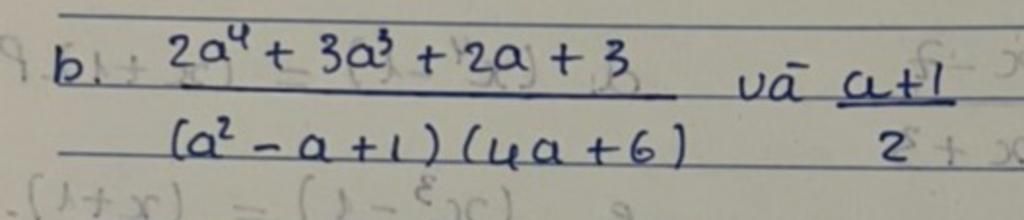 b. \frac{2a^4 + 3a^3 + 2a + 3}{(a^2 - a + 1)(4a + 6)} vā \frac{a+1}{2}